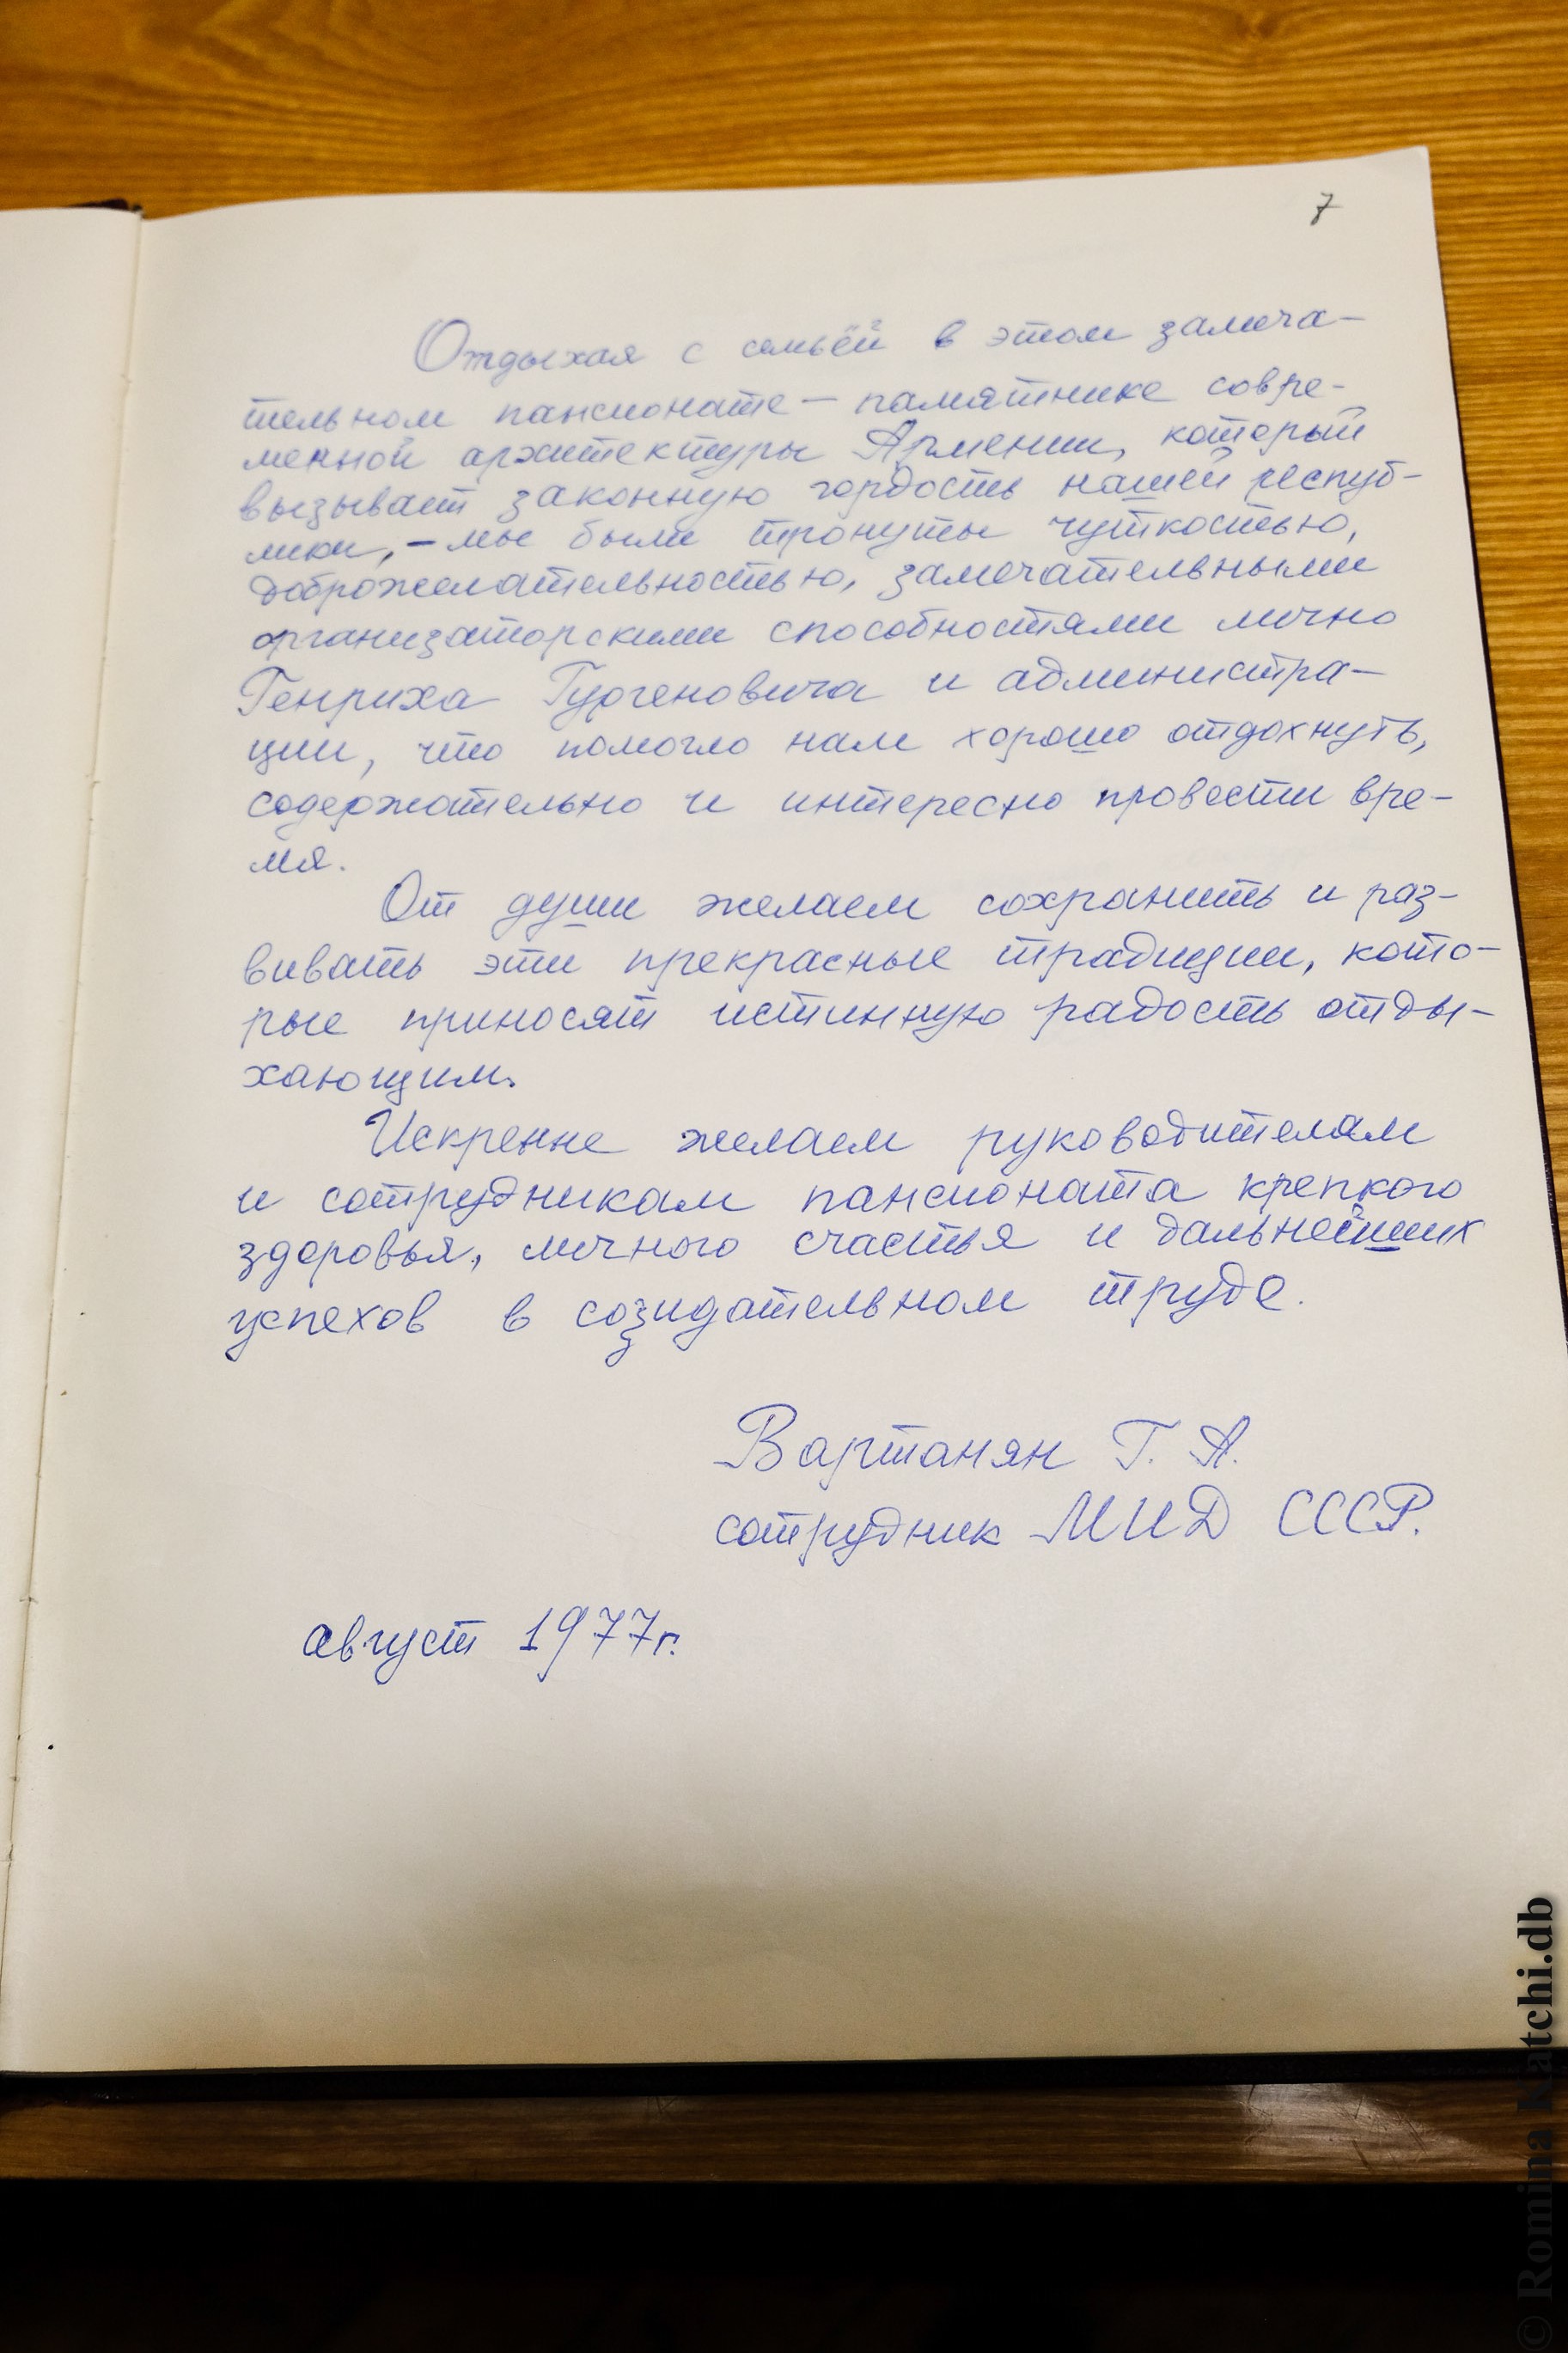 7
Отдыхая с семьёй в этом замеча-
тельном пансионате — памятнике совре-
менной архитектуры Армении, который
вызывает законную гордость нашей респуб-
лики, – мы были тронуты чуткостью,
доброжелательностью, замечательными
организаторскими способностями лично
Генриха Гургеновича и администра-
ции, что помогло нам хорошо отдохнуть,
содержательно и интересно провести вре-
мя.
От души желаем сохранить и раз-
вивать эти прекрасные традиции, кото-
рые приносят истинную радость отды-
хающим.
Искренне желаем руководителям
и сотрудникам пансионата крепкого
здоровья, личного счастья и дальнейших
успехов в созидательном труде.
Вартанян Г. А.
сотрудник МИД СССР.
август 1977г.
© Romina Katchi.db